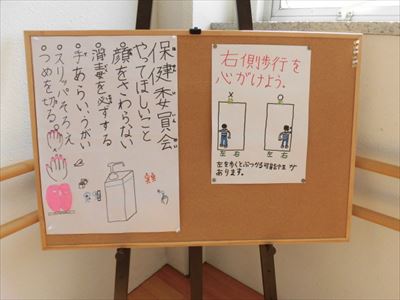 保健委員会
やってほしいこと
・顔をさわらない
・消毒を必ずする
・手あらい、うがい
・スリッパそろえ
・つめを切る
右側歩行を
心がけよう。
× ○
左 右 左 右
左を歩くとぶつかる可能性が
あります。